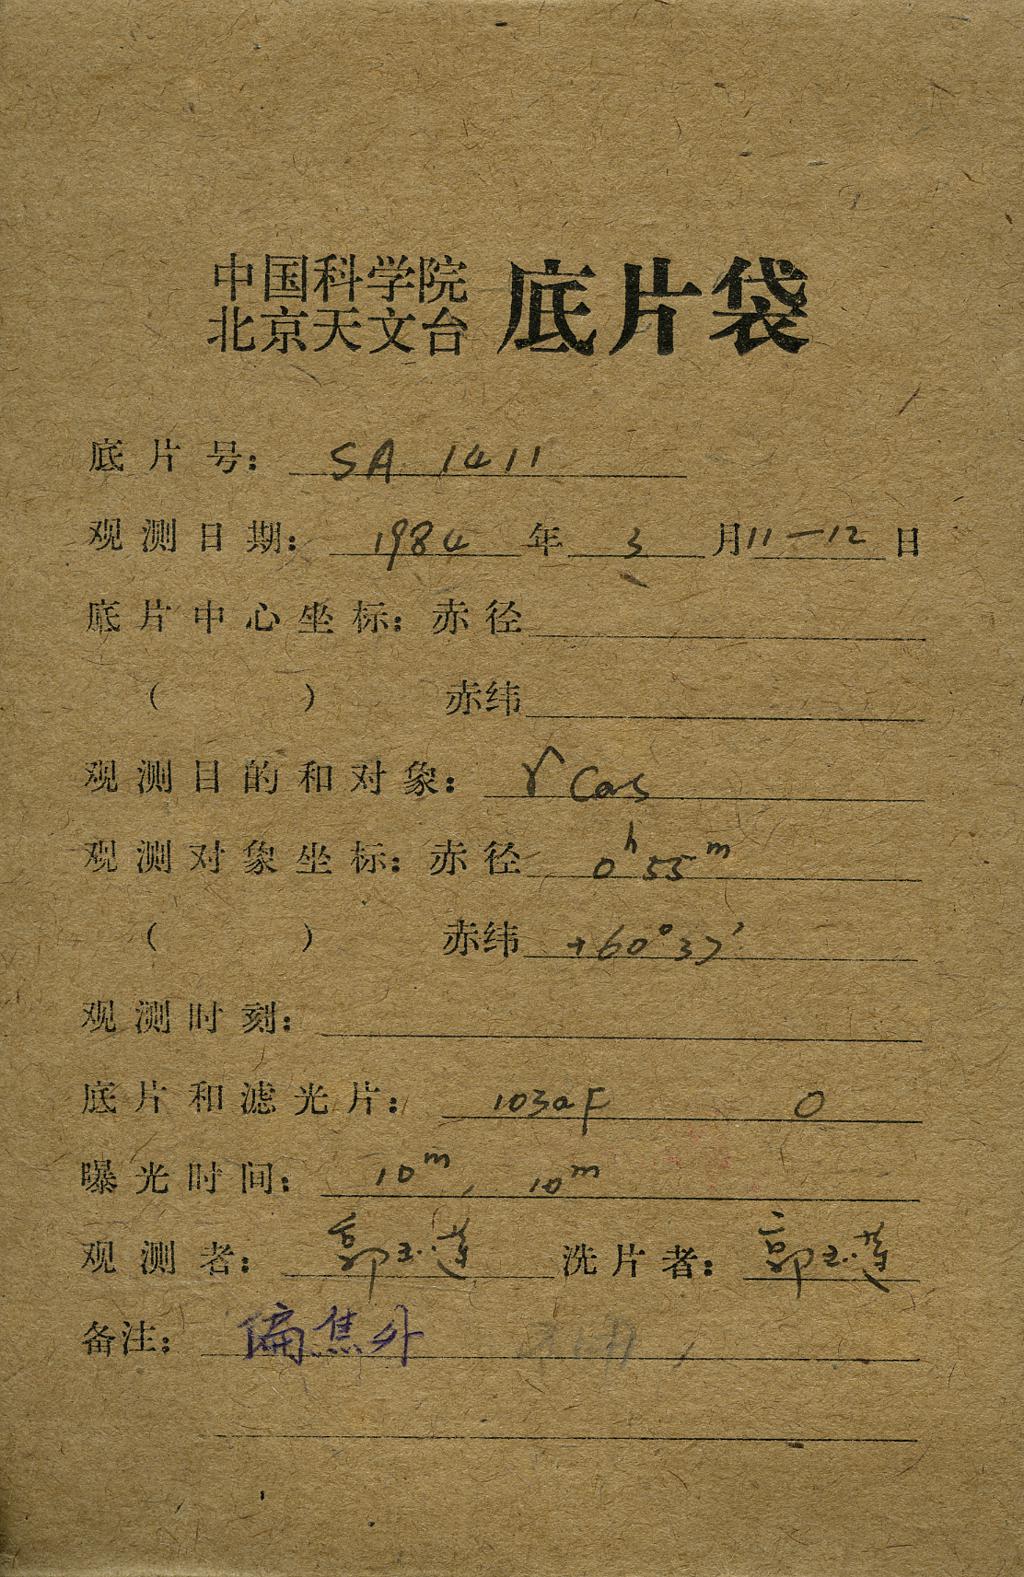 中国科学院
北京天文台 底片袋
底片号： SA 1411
观测日期： 1984 年 3 月 11－12 日
底片中心坐标：赤径
（ ） 赤纬
观测目的和对象： γ Cas
观测对象坐标：赤径 0h 55m
（ ） 赤纬 +60°37′
观测时刻：
底片和滤光片： 103aF 0
曝光时间： 10m, 10m
观测者： 郭玉莲 洗片者： 郭玉莲
备注： 偏焦外